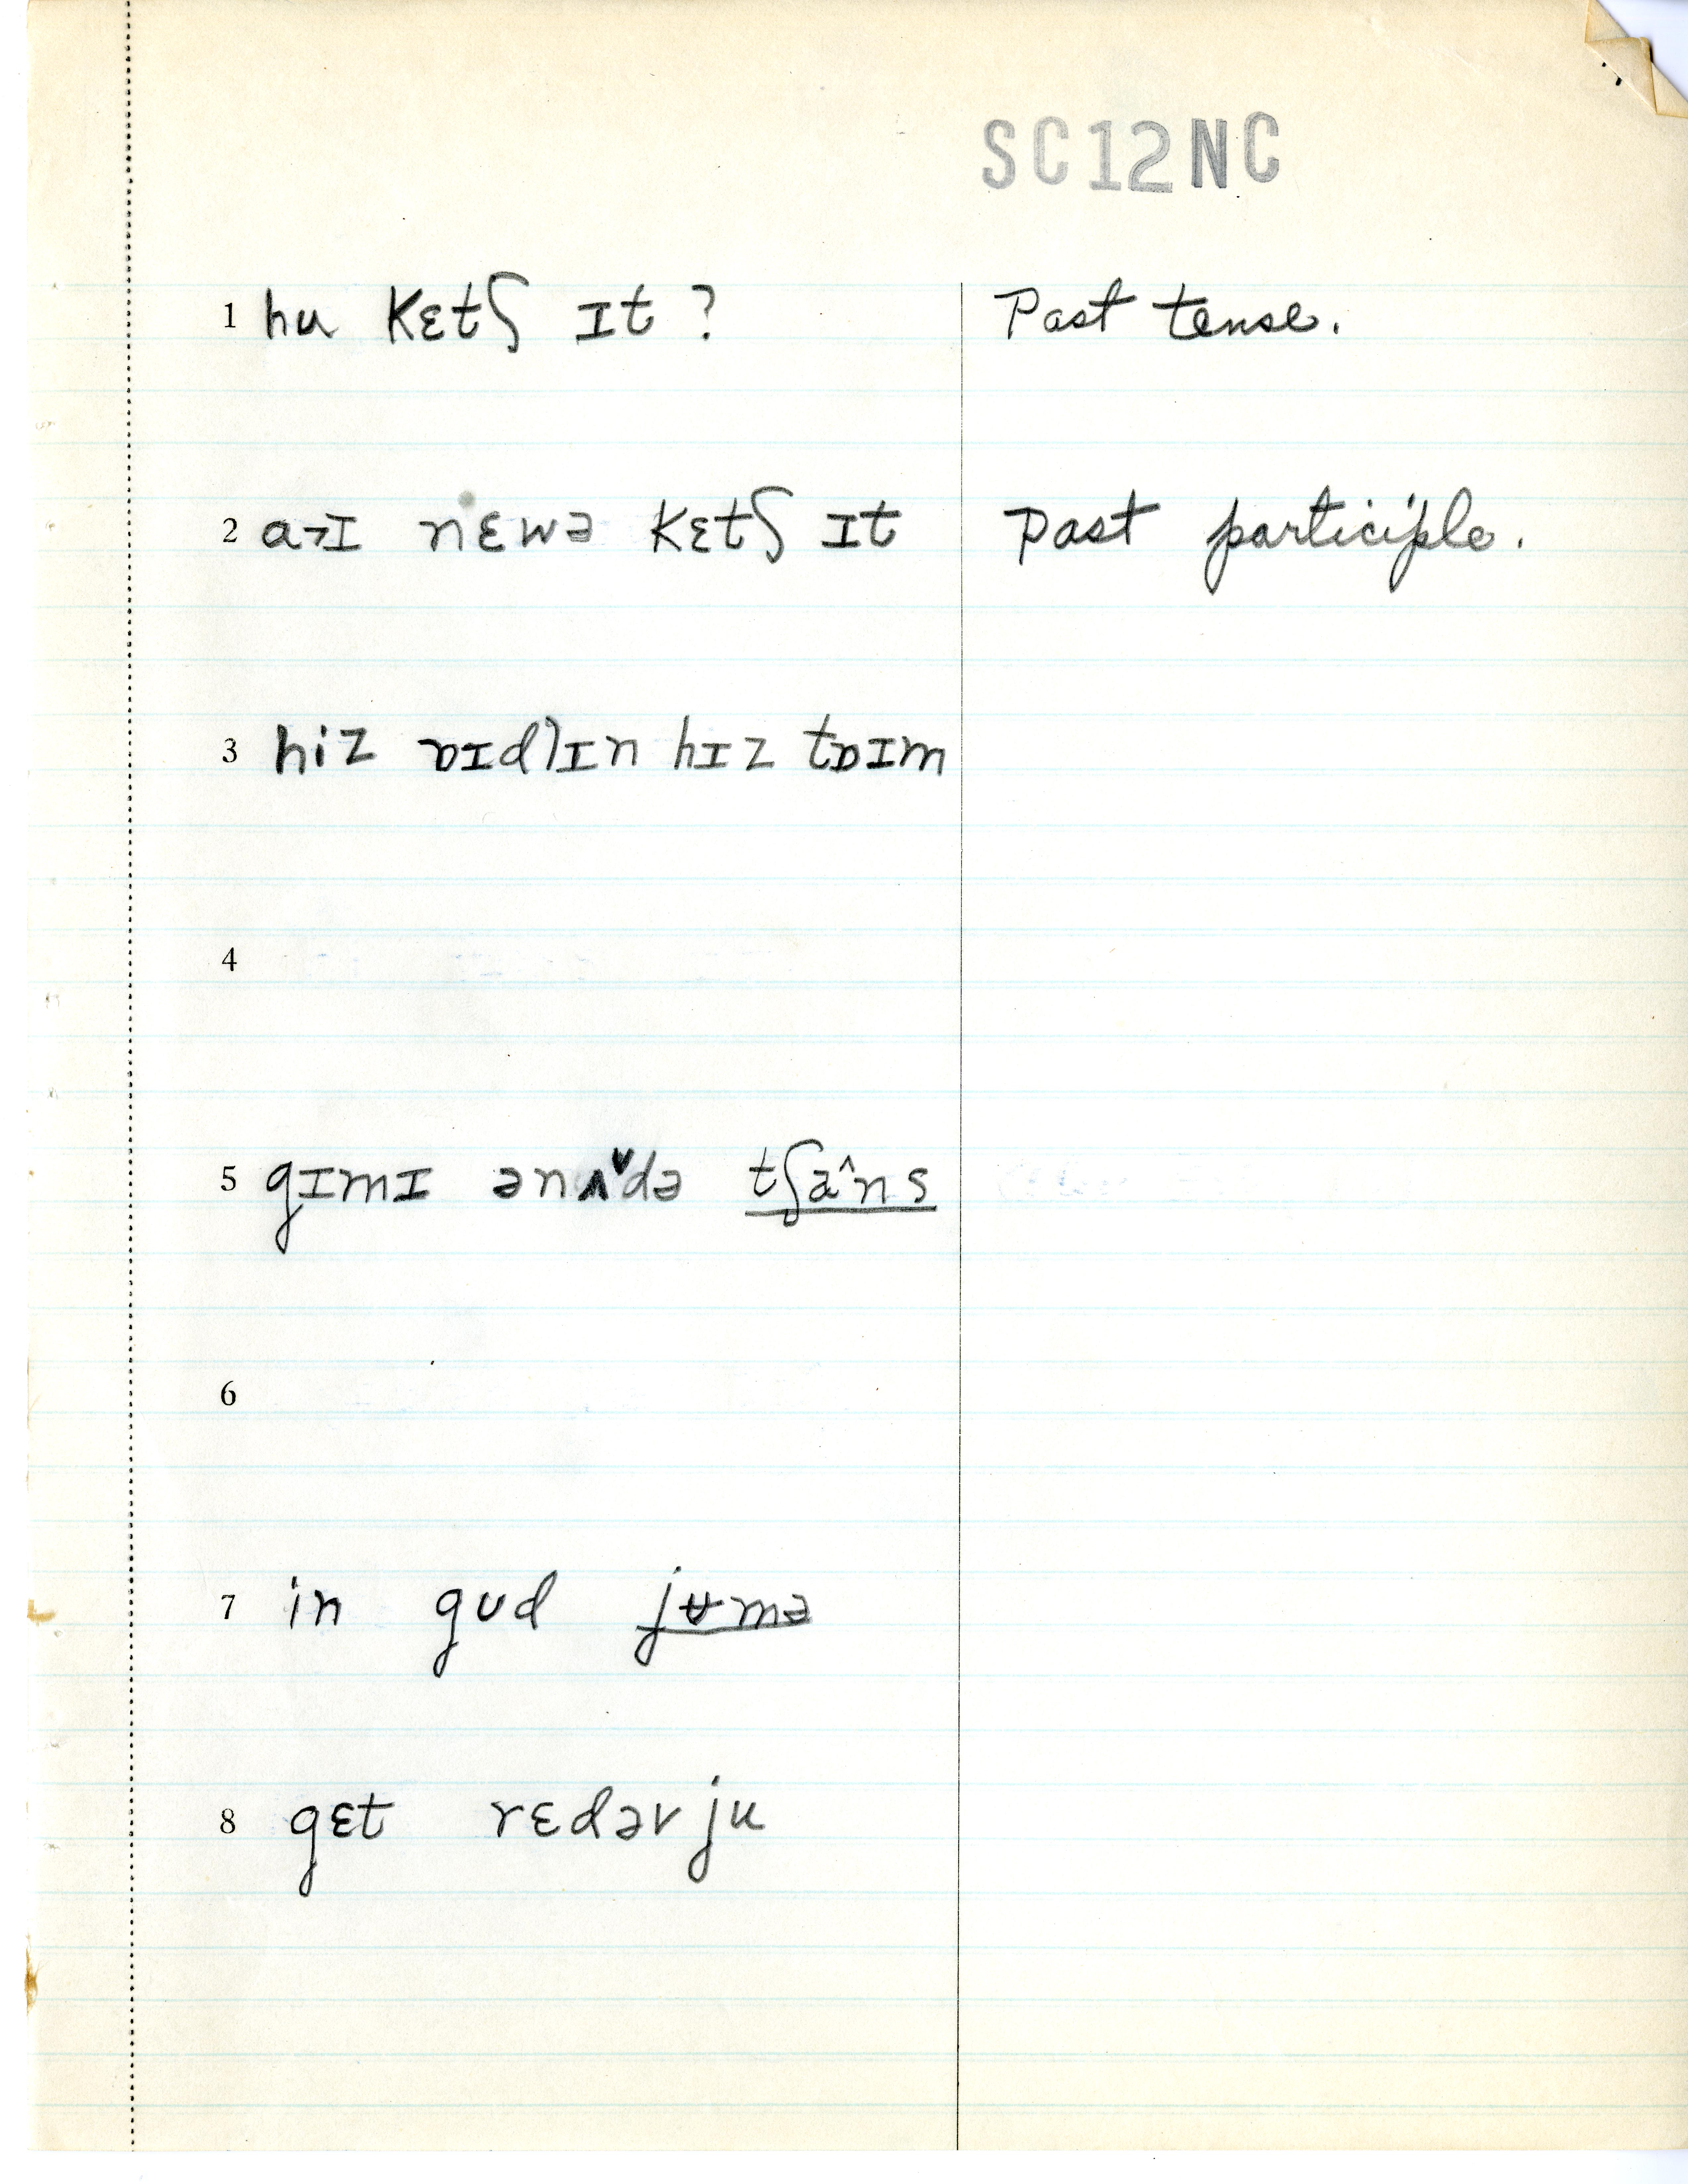 SC12NC
1 hu kɛtʃ ɪt ? Past tense.
2 a˒ɪ nɛwə kɛtʃ ɪt Past participle.
3 hiz ɒɪdlɪn hɪz tɒɪm
4
5 gɪmɪ ənʌ˅də tʃa^ns
6
7 in gʊd jʉmə
8 gɛt rɛdəv ju